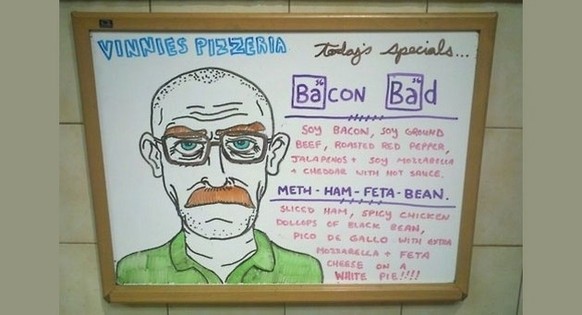 VINNIES PIZZERIA
Today's specials...
56 56
BaCON Bad
SOY BACON, SOY GROUND
BEEF, ROASTED RED PEPPER,
JALAPENOS + SOY MOZZARELLA
+ CHEDDAR WITH HOT SAUCE.
METH-HAM-FETA-BEAN.
SLICED HAM, SPICY CHICKEN
DOLLOPS OF BLACK BEAN,
PICO DE GALLO WITH EXTRA
MOZZARELLA + FETA
CHEESE ON A
WHITE PIE!!!!